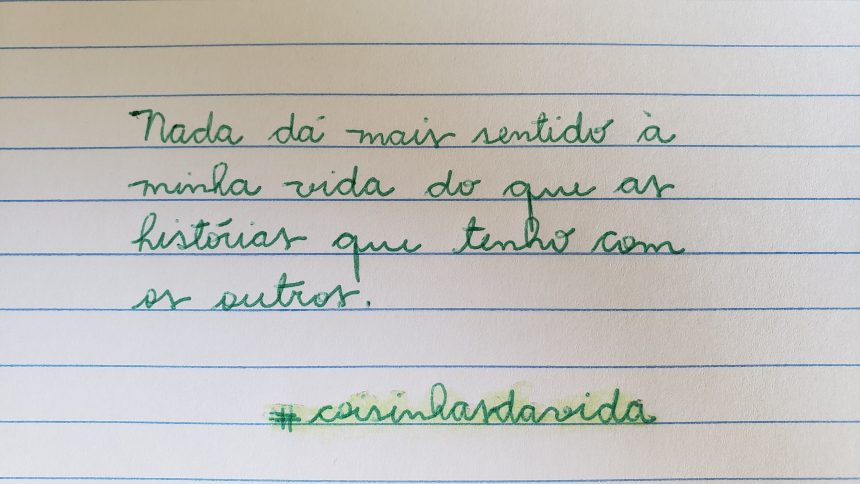 Nada dá mais sentido à
minha vida do que as
histórias que tenho com
os outros.
#coisinhasdavida